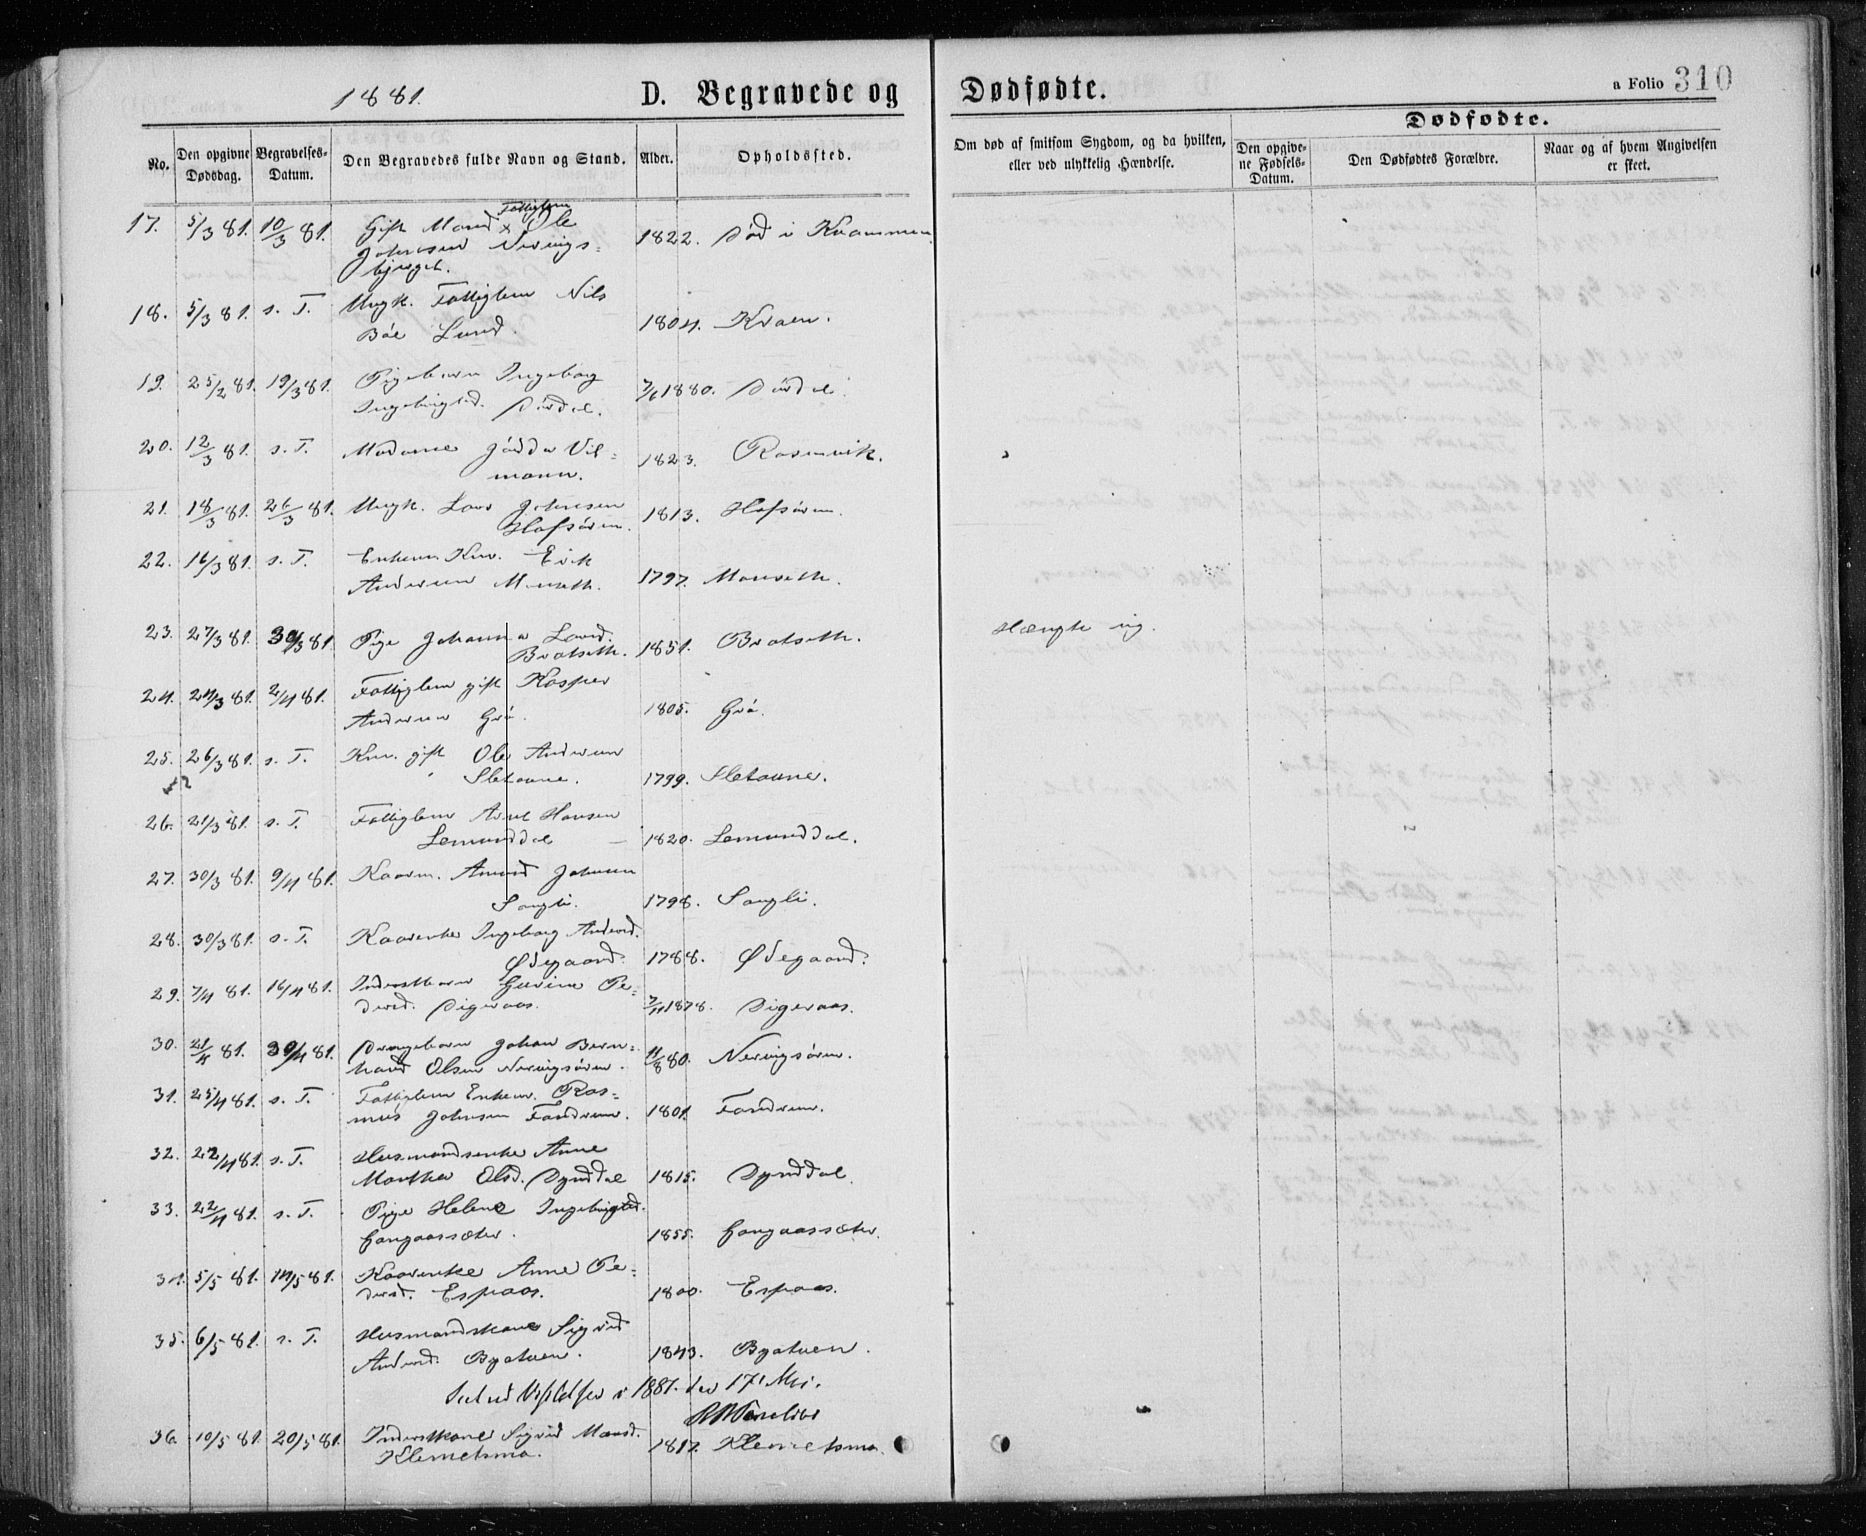 1881.
D. Begravede og Dødfødte.
a Folio 310
No.
Den opgivne Dødsdag.
Begravelses-Datum.
Den Begravedes fulde Navn og Stand.
Alder.
Opholdssted.
Om død af smitsom Sygdom, og da hvilken, eller ved ulykkelig Hændelse.
Dødfødte.
Den opgivne Fødsels-Datum.
Den Dødfødtes Forældre.
Naar og af hvem Angivelsen er skeet.
Fattiglem
17. 5/3 81. 10/3 81. Gift Mand x Ole 1822. Død i Kvammen
Johnsen Nerings=
bjerget.
18. 5/3 81. s. T. Ungk. Fattiglem Nils
Böe Lund. 1804. Kvaen.
19. 25/2 81. 19/3 81. Pigebarn Ingebog 7/6 1880. Dördal.
Ingebrigtsd. Dördal.
20. 12/3 81. s. T. Madame 1823.
mann.
21. 18/3 81. 26/3 81. Ungk. Lars Johnsen 1813. Hofsören.
Hofsören.
22. 16/3 81. s. T. Enkem. Km. Erik
Andersen 1797.
23. 27/3 81. 30/3 81. Pige Johanna Larsd. 1851. Bratseth. Hængte sig.
Bratseth.
24. 24/3 81. 2/4 81. Fattiglem gift Kasper
Andersen Grö. 1805. Grö.
25. 26/3 81. s. T. Km. gift Ole Andersen
Sletaune. 1799. Sletaune.
26. 21/3 81. s. T. Fattiglem Arnt Hansen
Lemunddal 1820. Lemunddal.
27. 30/3 81. 9/4 81. Kaarm. Amund Johnsen
Songli. 1798. Songli.
28. 30/3 81. s. T. Kaarenke Ingeborg Andersd.
Ødegaard. 1788. Ødegaard.
29. 7/4 81. 16/4 81. Inderstbarn Pe=
dersd. Digeraas. 7/11 1878. Digeraas.
30. 21/4 81. 30/4 81. Drengebarn Johan Bern= 11/8 80. Neringsören.
hard Olsen Neringsören.
31. 25/4 81. s. T. Fattiglem Enkem. Ras=
mus Johnsen Fandrem. 1801. Fandrem.
32. 22/4 81. s. T. Husmandsenke Anne
Martha Olsd. Dynddal 1815. Dynddal.
33. 22/4 81. s. T. Pige Helene Ingebrigtsd.
Gangaassæter. 1855. Gangaassæter.
34. 5/5 81. 14/5 81. Kaarenke Anne Pe=
dersd. Espaas. 1800. Espaas.
35. 6/5 81. s. T. Husmandskone Sigrid
Andersd. Byatuen. 1843. Byatuen.
1881. den 17' Mai.
36. 10/5 81. 20/5 81. Inderstkone Sigrid Monsd. 1817. Klemetsmo.
Klemetsmo.